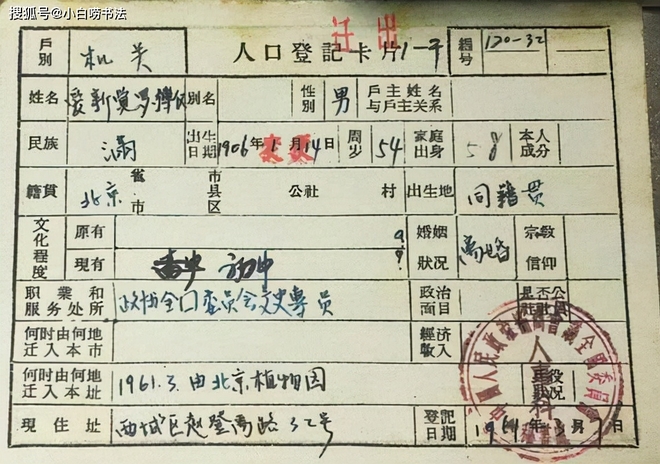 搜狐号@小白唠书法
迁出
戶別 机关 人口登記卡片1-子 編号 120-32
姓名 愛新覚罗 別名 性別 男 戶主姓名与戶主关系
民族 满 出生日期 1906年1月14日 变更 周岁 54 家庭出身 58 本人成分
籍貫 北京 省市 市县区 公社 村 出生地 同籍贯
文化程度 原有 婚姻狀况 离婚 宗教信仰
現有 初中
职業和服务处所 政协全囗委员会文史專员 政治面目 是否公
何时由何地迁入本市 經济收入
何时由何地迁入本址 1961.3.由北京植物园 兵役状况
現住址 西城区赵登禹路32号 登記日期 年 月 日
人事科